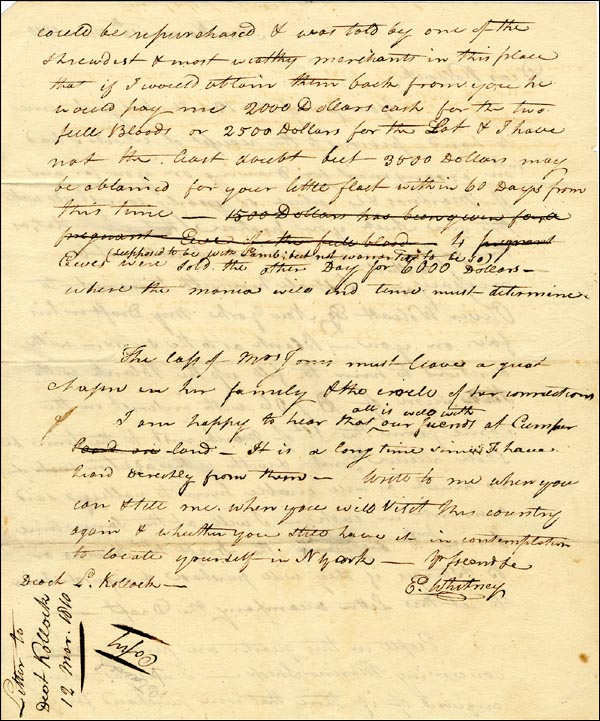 could be repurchased & was told by one of the
shrewdest & most wealthy merchants in this place
that if I would obtain them back from you he
would pay me 2000 Dollars cash for the two
full Bloods or 2500 Dollars for the Lot & I have
not the least doubt but 3500 Dollars may
be obtained for your little flock within 60 Days from
this time — 1500 Dollars has been given for a
pregnant Ewe of the full blood — 4 pregnant
(supposed to be with Lamb; but not warranted to be so)
Ewes were sold the other Day for 6000 Dollars —
where the mania will end time must determine.
The loss of Mrs Jones must leave a great
chasm in her family & the circle of her connections
I am happy to hear that all is well with our friends at Cumber
land — It is a long time since I have
heard directly from them — Write to me when you
can & tell me when you will Visit this country
again & whether you still have it in contemplation
to locate yourself in N York — Yr friend &c
Doct L. Kollock — E. Whitney
Letter to
Doct Kollock
12 Mar. 1810
Copy